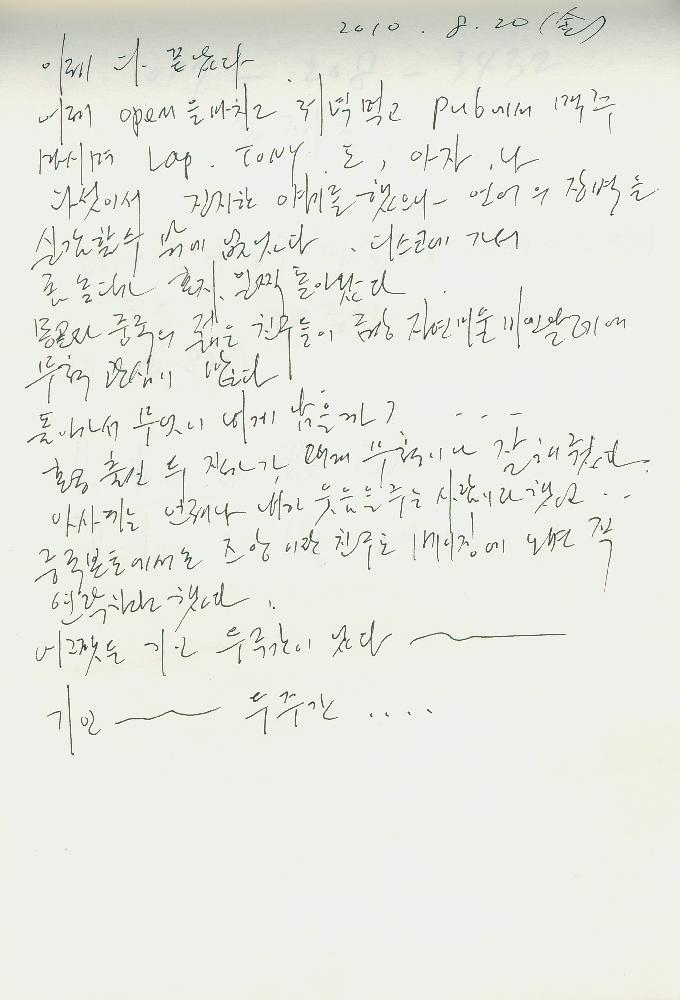 2010. 8. 20 (金)
이제 다 끝났다
어제 open을 마치고 저녁먹고 Pub에서 맥주
마시며 Lap. TONY. 도, 아자, 나
다섯이서 진지한 얘기를 했으나 언어의 장벽을
실감할수 밖에 없었다. 디스코에 가서
좀 놀다가 혼자 일찍 돌아왔다
몽골과 중국의 젊은 친구들이 금강 자연미술비엔날레에
무척 관심이 많다
돌아가서 무엇이 내게 남을까? ...
홍콩 출신 두 작가가 내게 무척이나 잘해줬다.
아사키는 언제나 내가 웃음을 주는 사람이라 했고..
중국본토에서 온 조양이란 친구도 베이징에 오면 꼭
연락하라 했다.
어쨌든 기인 두주간이 갔다
기인 두주간 ....